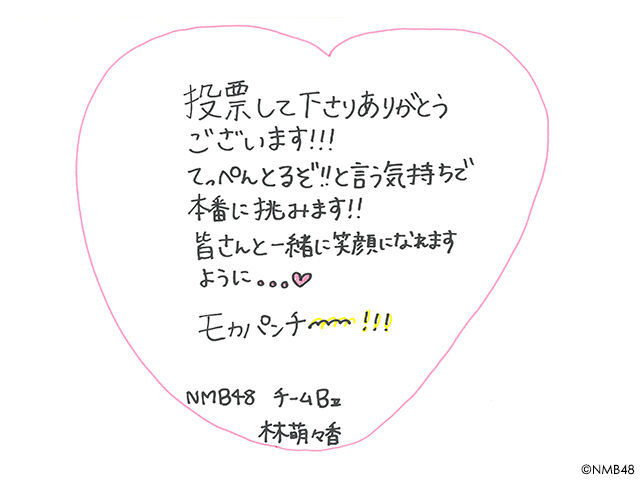 投票して下さりありがとう
ございます!!!
てっぺんとるぞ!!と言う気持ちで
本番に挑みます!!
皆さんと一緒に笑顔になれます
ように。。。♥
モカパンチ〜〜!!!
NMB48 チームBⅡ
林萌々香
©NMB48